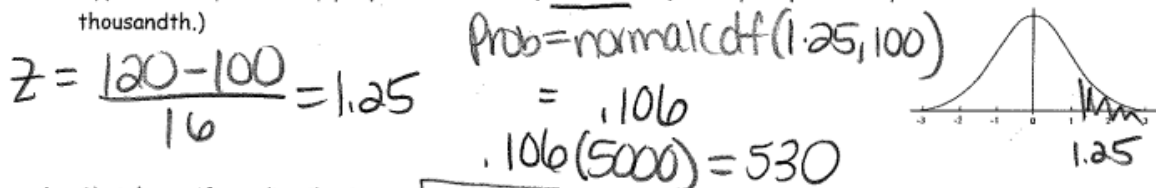 thousandth.)
z = 120-100 / 16 = 1.25
Prob=normalcdf(1.25,100)
= .106
.106(5000)=530
-3 -2 -1 0 1 2 3
1.25